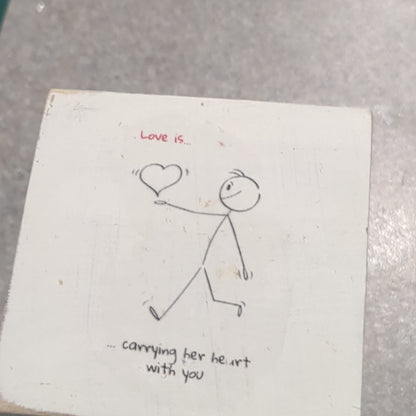 Love is...
... carrying her heart
with you